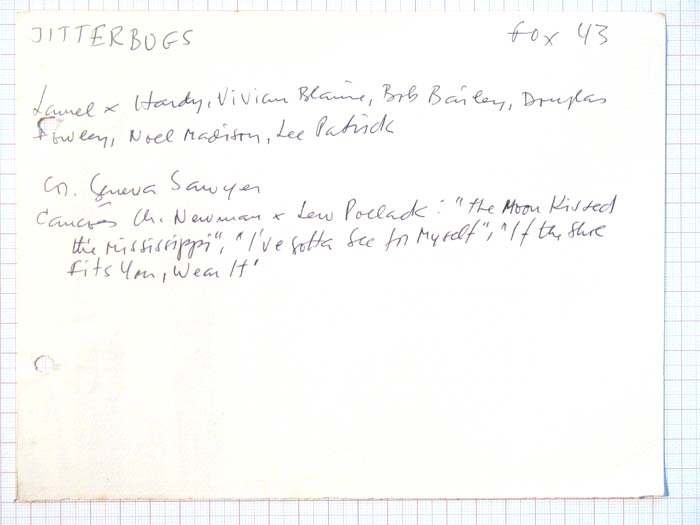 JITTERBUGS Fox 43
Laurel x Hardy, Vivian Blaine, Bob Bailey, Douglas
Fowley, Noel Madison, Lee Patrick
Cn. Geneva Sawyer
Cancões Ch. Newman x Lew Pollack: "The Moon Kissed
the Mississippi", "I've gotta See for Myself", "If the Shoe
Fits You, Wear It"